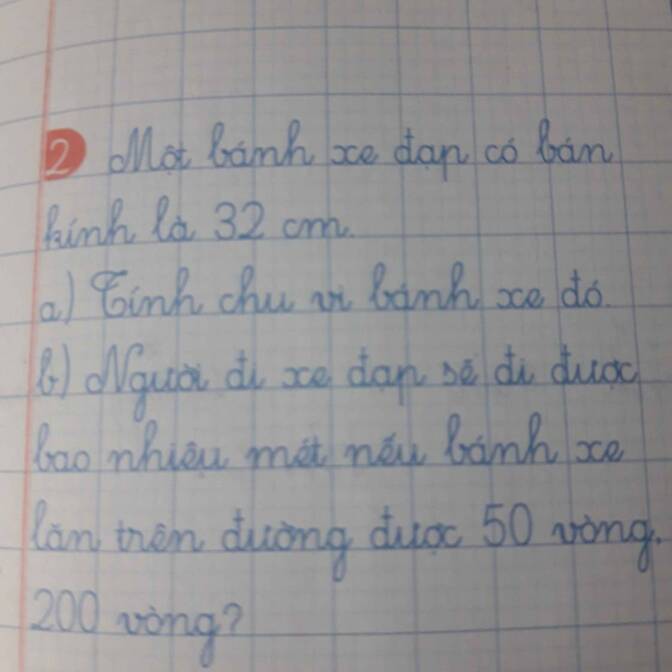 2 Một bánh xe đạp có bán
kính là 32 cm.
a) Tính chu vi bánh xe đó.
b) Người đi xe đạp sẽ đi được
bao nhiêu mét nếu bánh xe
lăn trên đường được 50 vòng.
200 vòng?